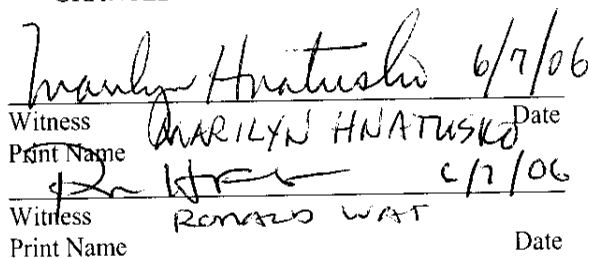 Marilyn Hnatusko 6/7/06
Witness MARILYN HNATUSKO Date
Print Name
6/7/06
Witness RONALD WAT
Print Name Date